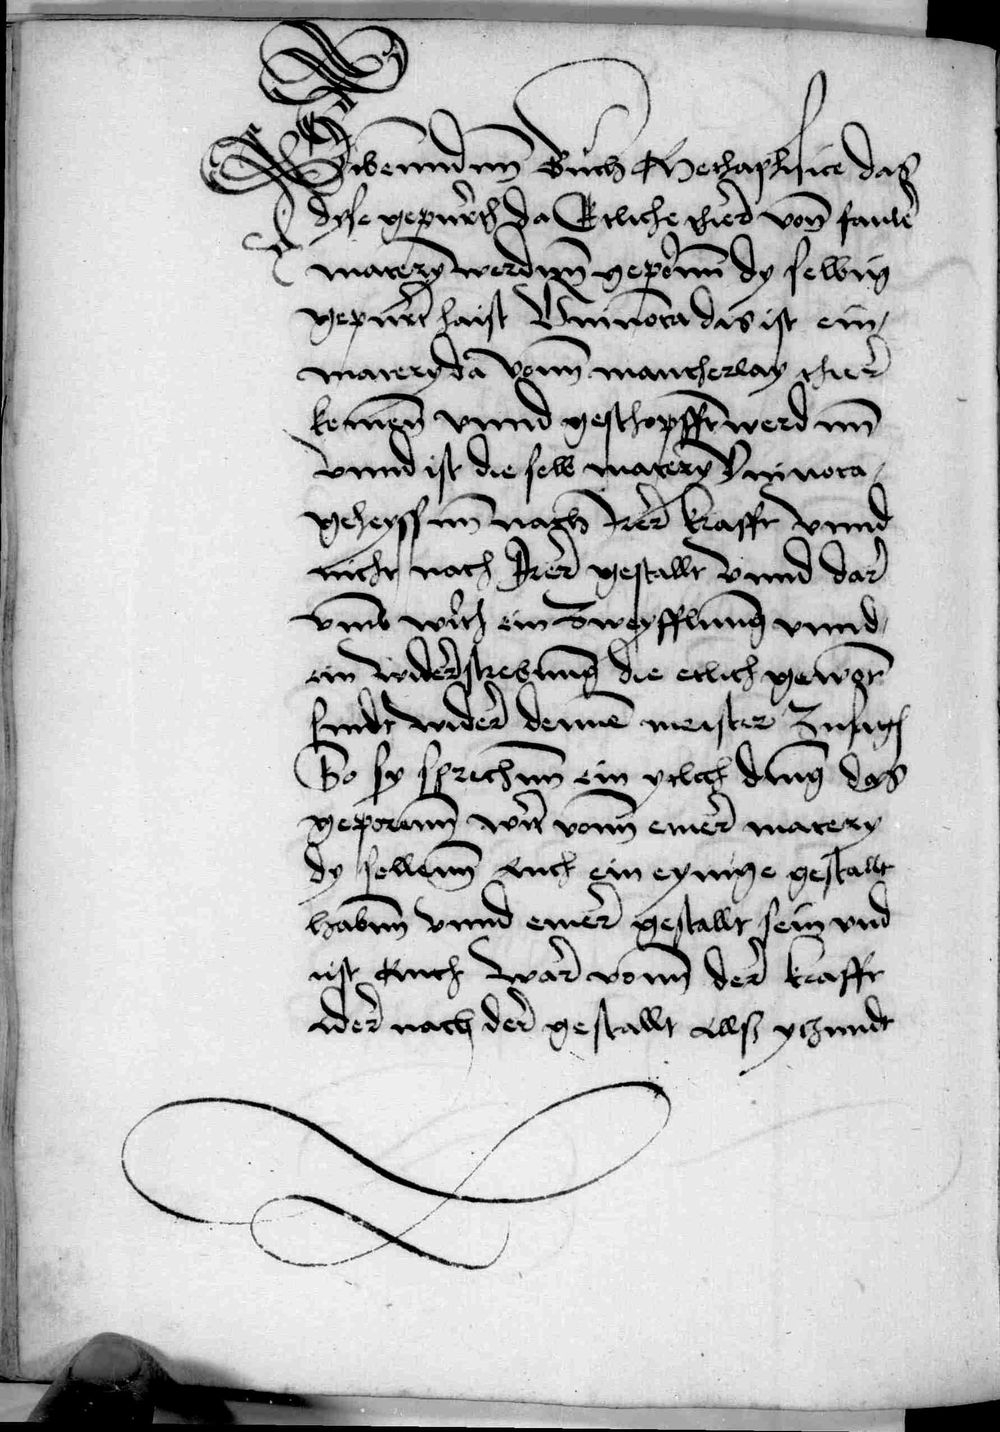 Sibennndnn Buch Methaphisice das
dyse gepurtth da Etliche thier vonn fauler
matery werdnn gepornn dy selbig
gepurt haist Vniuoca das ist ein
matery da vonn mancherlay thier
kemen vnnd geschopfft werdnn
vnnd ist die selb matery Vniuoca
geheyssnn nach Irer krafft vnnd
nicht nach Irer gestallt vnnd dar
vmb wirtt ein Zweyfflung vnnd
ein widerstrebung die etlich gewont
sindt wider dennen meister Zusagen
So sy sprechnn ein ytlich ding das
geporenn wirt vonn einer matery
dy sollenn Auch ein eynige gestallt
habnn vnnd einer gestallt sein vnd
ist Auch war vonn der krafft
wer nach der gestallt Alls ytzundt